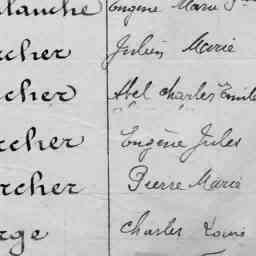 lanche Eugène Marie
rcher Julien Marie
cher Abel Charles Emile
rcher Eugène Jules
rcher Pierre Marie
rge Charles Louis